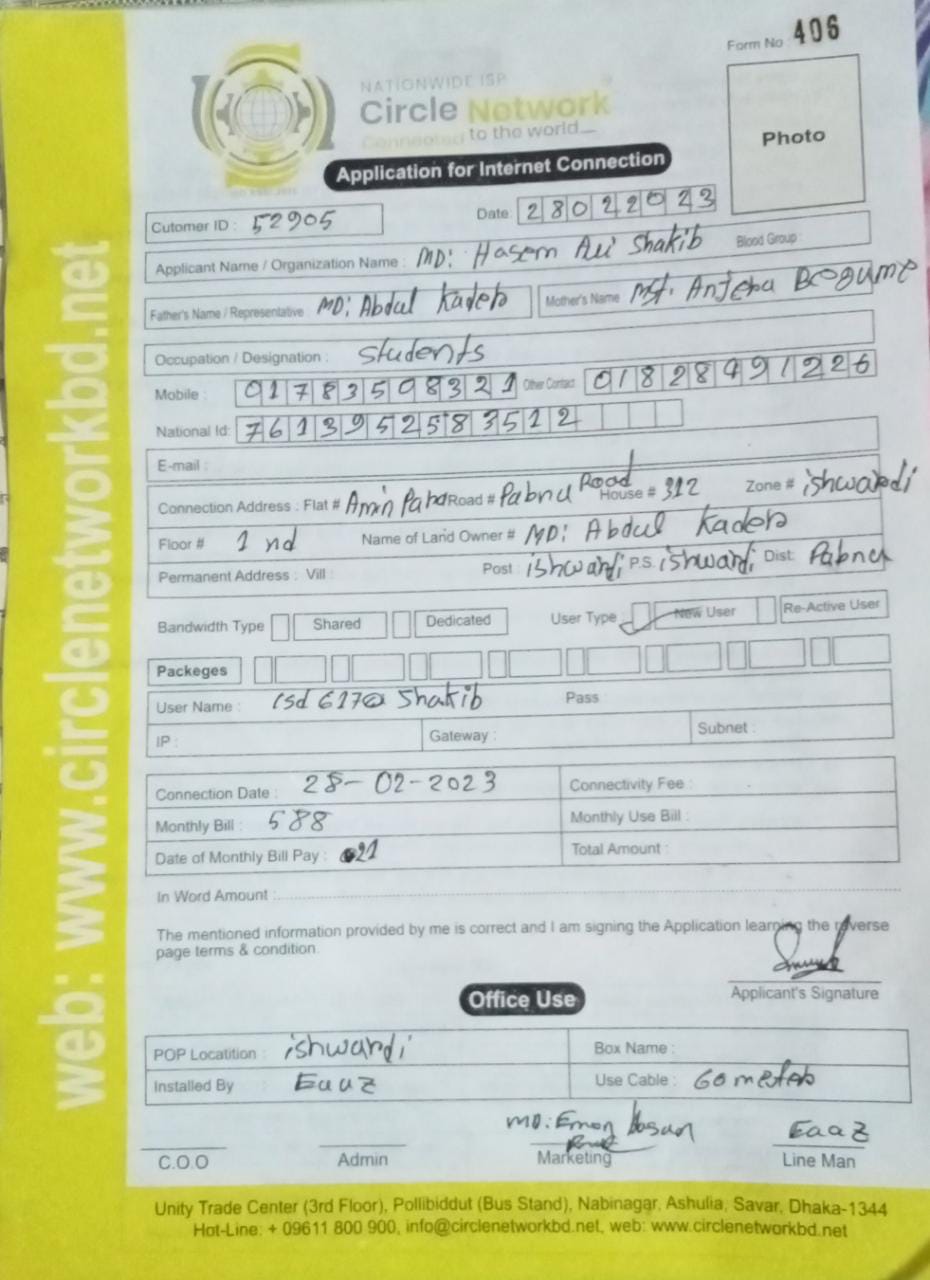 Form No 406
NATIONWIDE ISP
Circle Network
Connected to the world
Photo
Application for Internet Connection
Cutomer ID : 52905 Date: 28022023
Applicant Name / Organization Name : MD: Hasem Ali Shakib Blood Group :
Father's Name / Representative MD: Abdul Kader Mother's Name Mst. Anjera Begume
Occupation / Designation : Students
Mobile : 01783508321 Other Contact 01828491226
National Id: 7613952583512
E-mail :
Connection Address : Flat # Amin Para Road # Pabna Road House # 312 Zone # ishwardi
Floor # 1 nd Name of Land Owner # MD: Abdul Kader
Permanent Address : Vill : Post : ishwardi P.S. ishwardi Dist: Pabna
Bandwidth Type Shared Dedicated User Type New User Re-Active User
Packeges
User Name : isd617@Shakib Pass
IP : Gateway : Subnet :
Connection Date : 28-02-2023 Connectivity Fee :
Monthly Bill : 588 Monthly Use Bill :
Date of Monthly Bill Pay : 21 Total Amount :
In Word Amount :
The mentioned information provided by me is correct and I am signing the Application learning the reverse
page terms & condition.
Applicant's Signature
Office Use
POP Locatition : ishwardi Box Name :
Installed By Eaaz Use Cable : 60 meter
MD: Emon Hasan Eaaz
C.O.O Admin Marketing Line Man
Unity Trade Center (3rd Floor), Pollibiddut (Bus Stand), Nabinagar, Ashulia, Savar, Dhaka-1344
Hot-Line: + 09611 800 900, info@circlenetworkbd.net, web: www.circlenetworkbd.net
web: www.circlenetworkbd.net